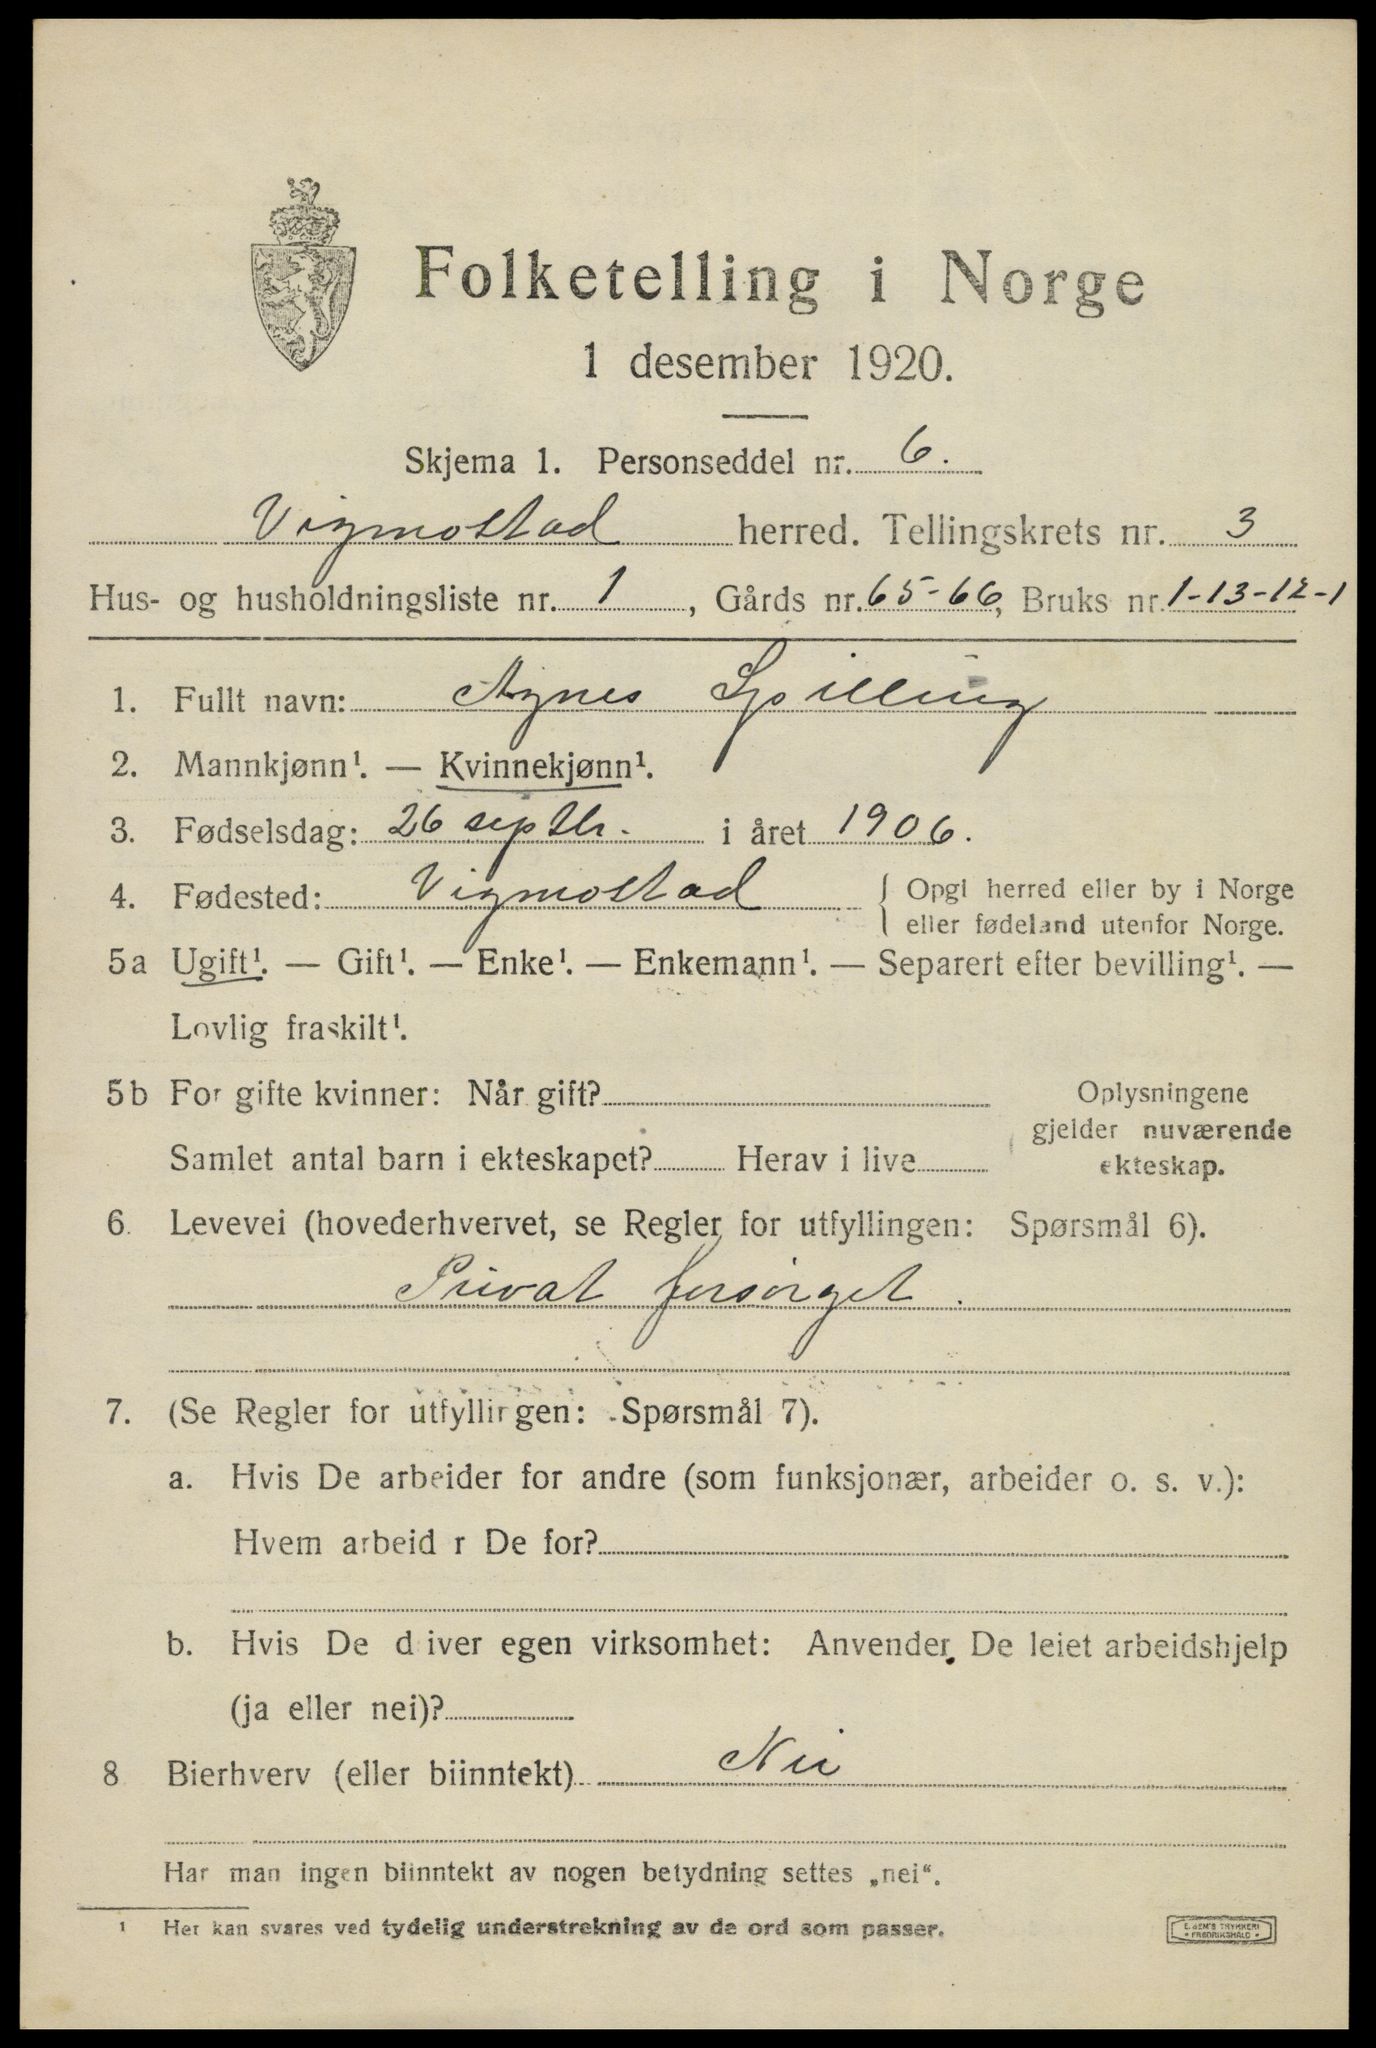 Folketelling i Norge
1 desember 1920.
Skjema 1. Personseddel nr. 6.
Vigmostad herred. Tellingskrets nr. 3
Hus- og husholdningsliste nr. 1, Gårds nr. 65-66, Bruks nr. 1-13-12-1
1. Fullt navn: Agnes Spilling
2. Mannkjønn¹. — Kvinnekjønn¹.
3. Fødselsdag: 26 septbr. i året 1906.
4. Fødested: Vigmostad { Opgi herred eller by i Norge
eller fødeland utenfor Norge.
5a Ugift¹. — Gift¹. — Enke¹. — Enkemann¹. — Separert efter bevilling¹. —
Lovlig fraskilt¹.
5b For gifte kvinner: Når gift?
Samlet antal barn i ekteskapet? Herav i live
Oplysningene
gjelder nuværende
ekteskap.
6. Levevei (hovederhvervet, se Regler for utfyllingen: Spørsmål 6).
Privat forsørget.
7. (Se Regler for utfyllingen: Spørsmål 7).
a. Hvis De arbeider for andre (som funksjonær, arbeider o. s. v.):
Hvem arbeid r De for?
b. Hvis De d iver egen virksomhet: Anvender De leiet arbeidshjelp
(ja eller nei)?
8 Bierhverv (eller biinntekt) Nei
Har man ingen biinntekt av nogen betydning settes „nei“.
¹ Her kan svares ved tydelig understrekning av de ord som passer.
E. SEM'S TRYKKERI
• FREDRIKSHALD •